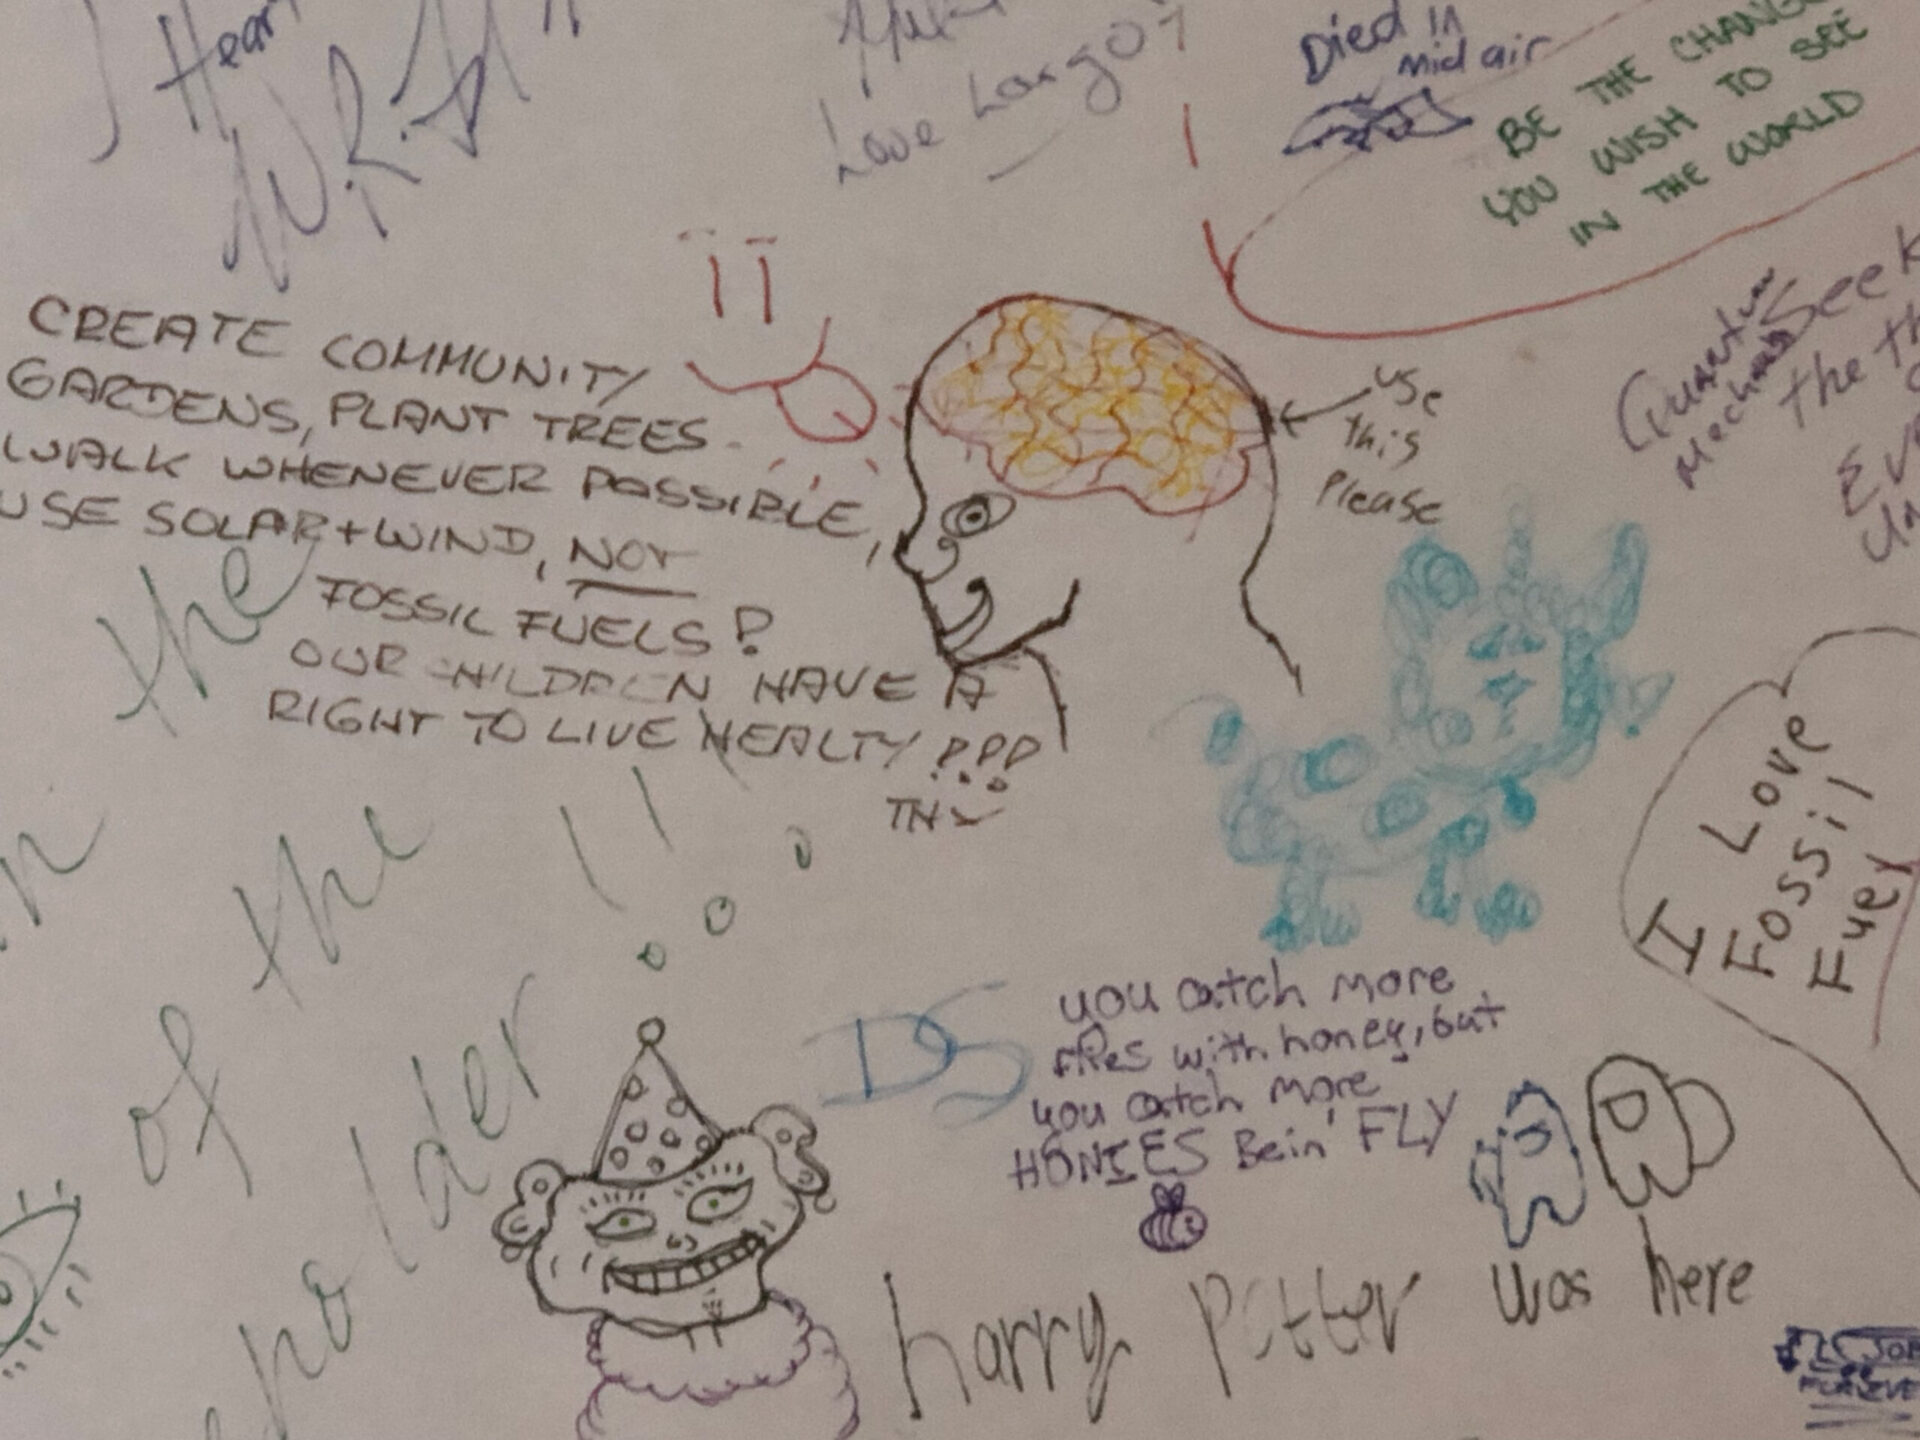 Heart
Love Largo
Died in
Mid air
BE THE CHANGE
YOU WISH TO SEE
IN THE WORLD
CREATE COMMUNITY
GARDENS, PLANT TREES
WALK WHENEVER POSSIBLE,
USE SOLAR+WIND, NOT
FOSSIL FUELS!
OUR CHILDREN HAVE A
RIGHT TO LIVE HEALTY !!!
use
this
Please
Quantum
Mechanics
Seek
the
the
of the
holder
!!
I Love
Fossil
Fuel
DS
you catch more
flies with honey, but
you catch more
HONIES Bein' FLY
harry Potter was here